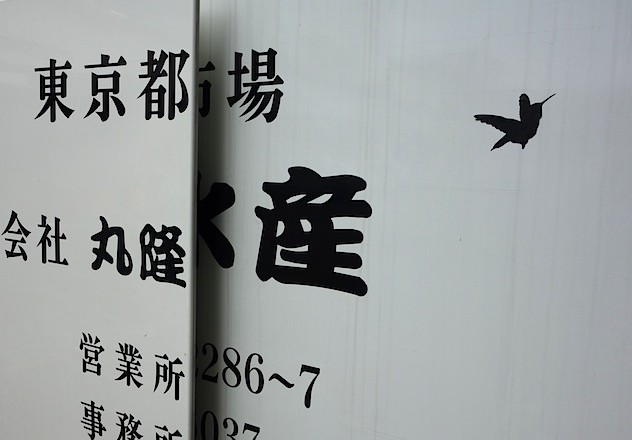 東京都市場
会社 丸隆水産
営業所 2286~7
事務所 037